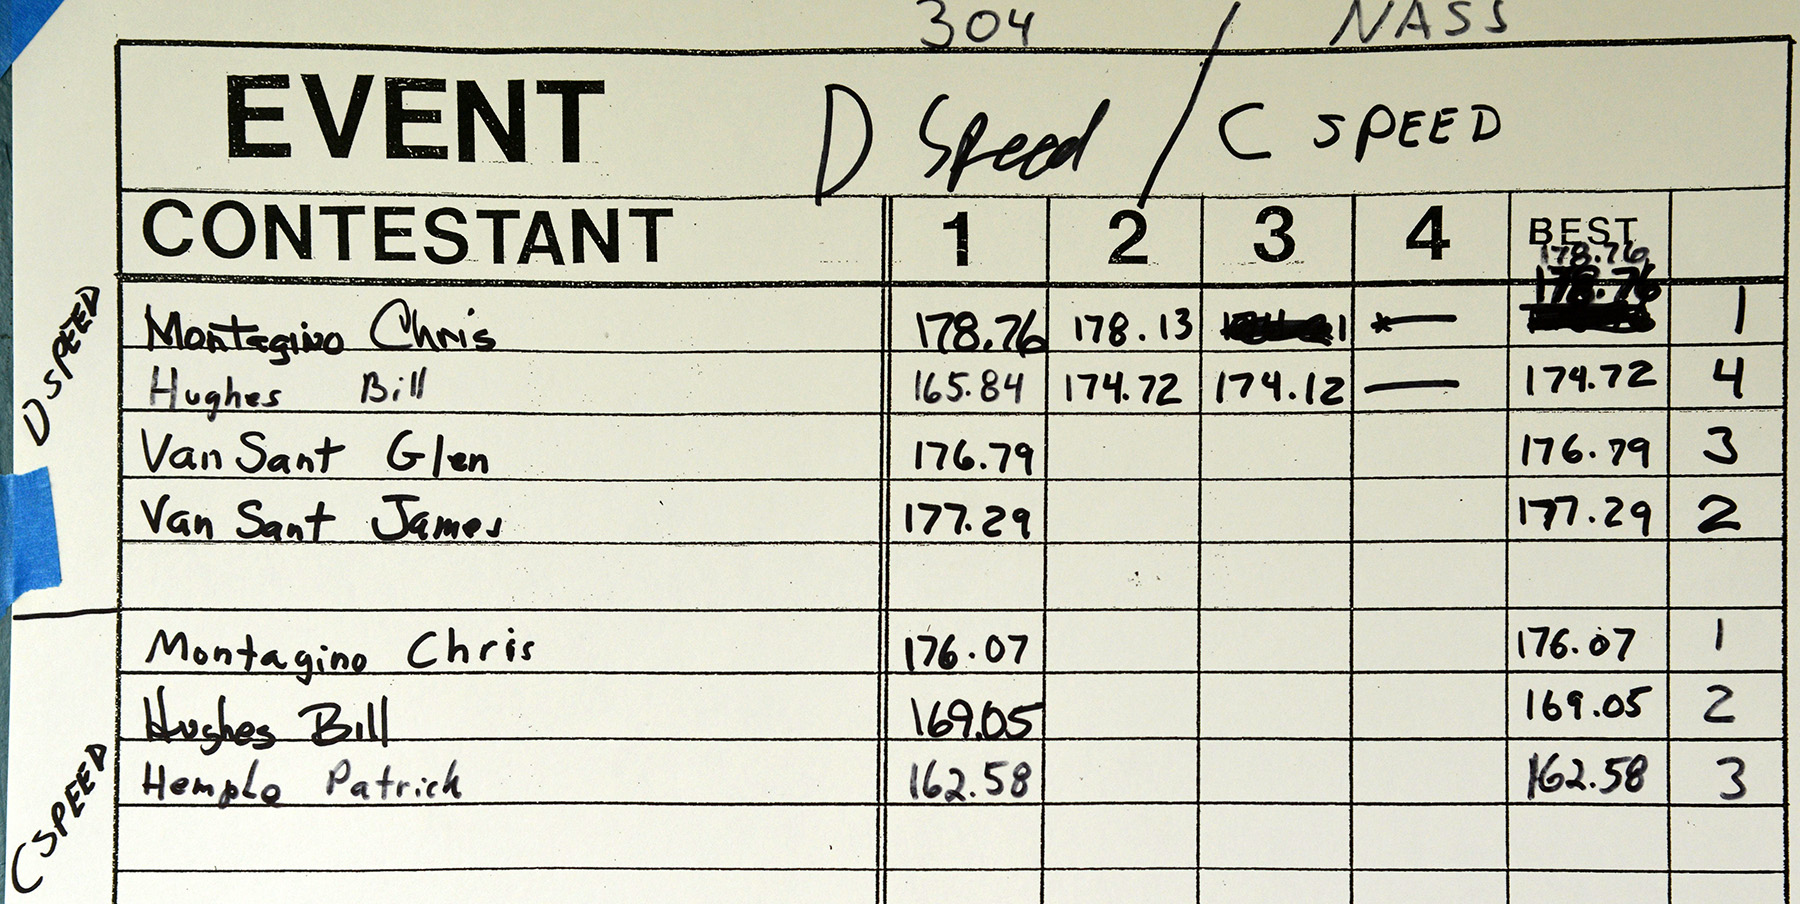 304 / NASS
EVENT D Speed / C SPEED
CONTESTANT 1 2 3 4 BEST
178.76
178.76
D SPEED
Montagino Chris 178.76 178.13 *— 1
Hughes Bill 165.84 174.72 174.12 — 174.72 4
Van Sant Glen 176.79 176.79 3
Van Sant James 177.29 177.29 2
C SPEED
Montagino Chris 176.07 176.07 1
Hughes Bill 169.05 169.05 2
Hemple Patrick 162.58 162.58 3